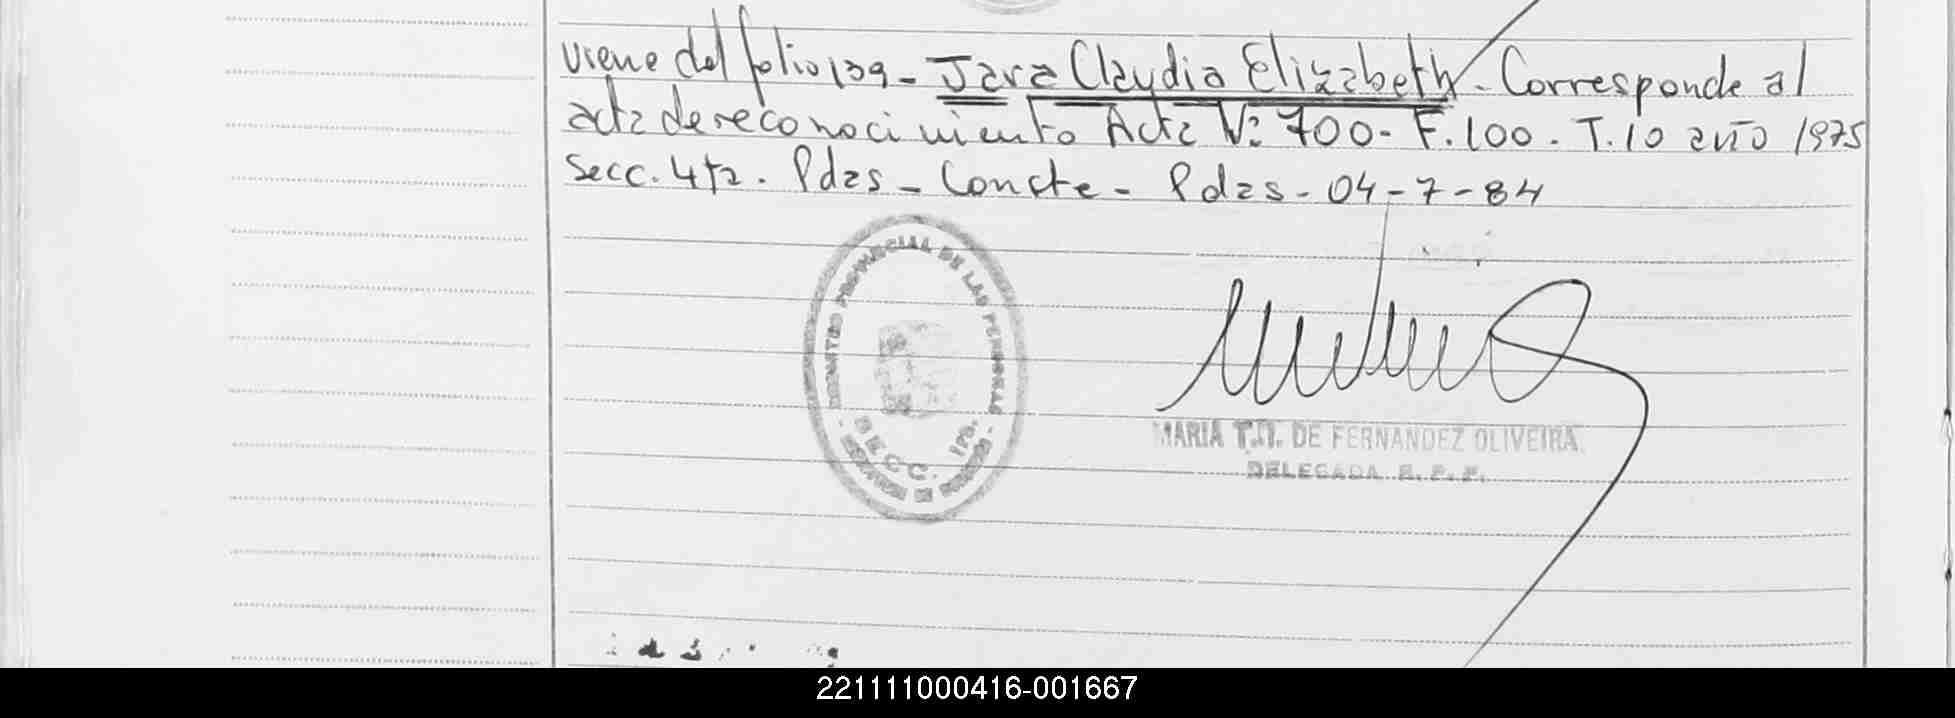 viene del folio 139 - Jara Claudia Elizabeth - Corresponde al
acta de reconocimiento Acta Nº 700 - F. 100 . T. 10 año 1975
Secc. 4ta . Pdas - Conste - Pdas - 04-7-84
REGISTRO PROVINCIAL DE LAS PERSONAS
SECC. 1ra.
MARIA T. DE FERNANDEZ OLIVEIRA
DELEGADA R. P. P.
221111000416-001667